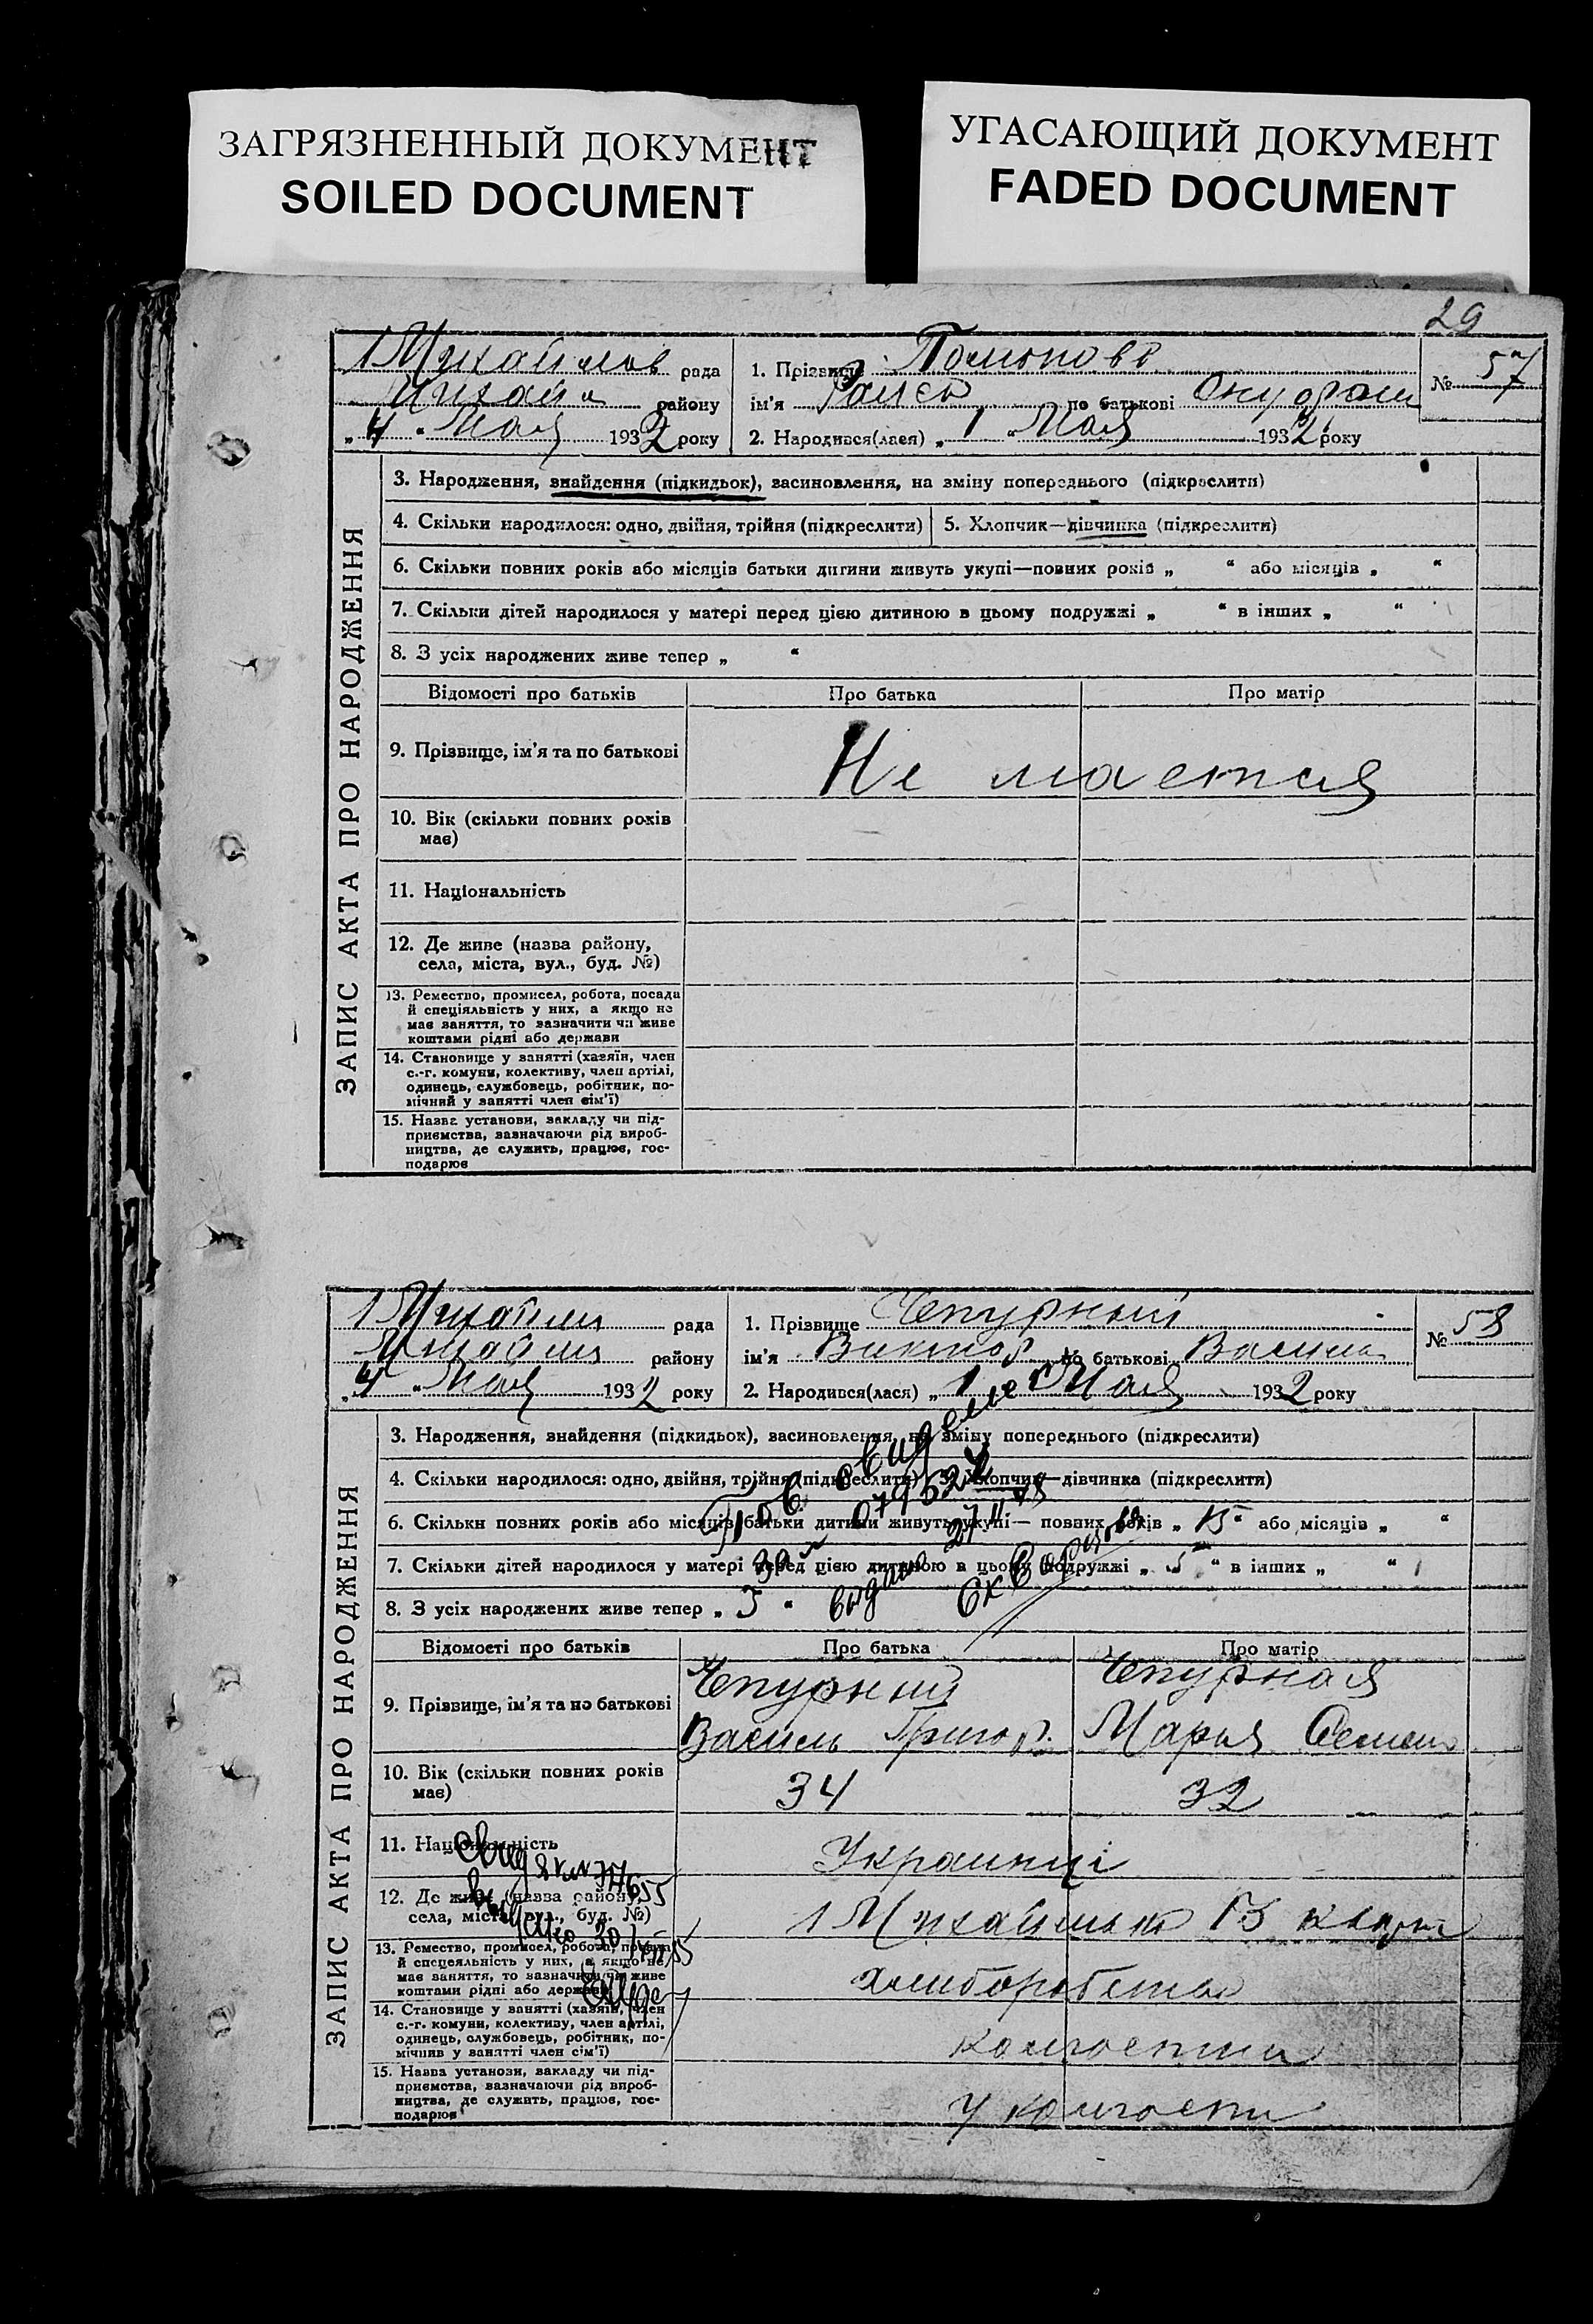 ЗАГРЯЗНЕННЫЙ ДОКУМЕНТ
SOILED DOCUMENT
УГАСАЮЩИЙ ДОКУМЕНТ
FADED DOCUMENT
29
1 Михайлов рада
району
„4“ Мая 1932 року
1. Прізвище
ім'я по батькові
2. Народився(лася) „1“ Мая 1932 року
№ 57
ЗАПИС АКТА ПРО НАРОДЖЕННЯ
3. Народження, знайдення (підкидьок), засиновлення, на зміну попереднього (підкреслити)
4. Скільки народилося: одно, двійня, трійня (підкреслити)
5. Хлопчик—дівчинка (підкреслити)
6. Скільки повних років або місяців батьки дитини живуть укупі—повних років „ “ або місяців „ “
7. Скільки дітей народилося у матері перед цією дитиною в цьому подружжі „ “ в інших „ “
8. З усіх народжених живе тепер „ “
Відомості про батьків Про батька Про матір
9. Прізвище, ім'я та по батькові
Не мается
10. Вік (скільки повних років
має)
11. Національність
12. Де живе (назва району,
села, міста, вул., буд. №)
13. Ремество, промисел, робота, посада
й спеціяльність у них, а якщо не
має заняття, то зазначити чи живе
коштами рідні або держави
14. Становище у занятті (хазяїн, член
с.-г. комуни, колективу, член артілі,
одинець, службовець, робітник, по-
мічний у занятті член сім'ї)
15. Назва установи, закладу чи під-
приємства, зазначаючи рід вироб-
ництва, де служить, працює, гос-
подарює
1 Михайли рада
Михайли району
„4“ Мая 1932 року
1. Прізвище Чепурный
ім'я Виктор по батькові Васили
2. Народився(лася) „1“ Мая 1932 року
№ 58
ЗАПИС АКТА ПРО НАРОДЖЕННЯ
3. Народження, знайдення (підкидьок), засиновлення, на зміну попереднього (підкреслити)
4. Скільки народилося: одно, двійня, трійня (підкреслити) 5. Хлопчик—дівчинка (підкреслити)
6. Скільки повних років або місяців батьки дитини живуть укупі— повних років „15“ або місяців „ “
7. Скільки дітей народилося у матері перед цією дитиною в цьому подружжі „5“ в інших „ “
8. З усіх народжених живе тепер „ “
Відомості про батьків Про батька Про матір
Чепурный Чепурная
9. Прізвище, ім'я та по батькові
Василь Григор. Мария Семен
10. Вік (скільки повних років
має)
34 32
11. Національність
Украинці
12. Де живе (назва району,
села, міста, вул., буд. №)
13. Ремество, промисел, робота, посада
й спецеяльність у них, а якщо не
має заняття, то зазначити чи живе
коштами рідні або держави
14. Становище у занятті (хазяїн, член
с.-г. комуни, колективу, член артілі,
одинець, службовець, робітник, по-
мічнив у занятті член сім'ї)
15. Назва установи, закладу чи під-
приємства, зазначаючи рід вироб-
ництва, де служить, працює, гос-
подарює